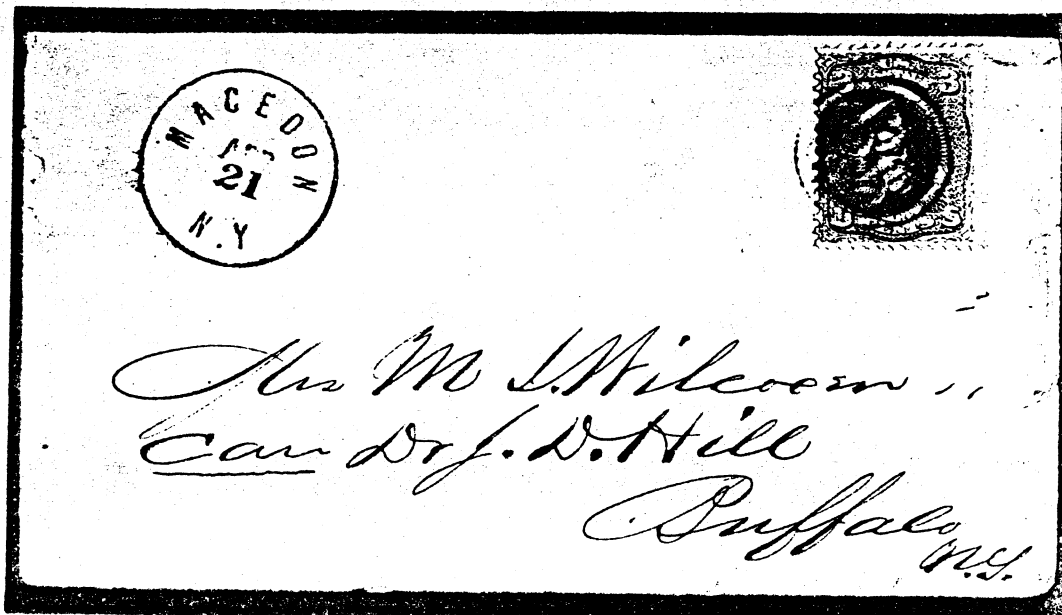 MACEDON
21
N.Y
Mrs M
care Dr J. D. Hill
Buffalo
N.Y.